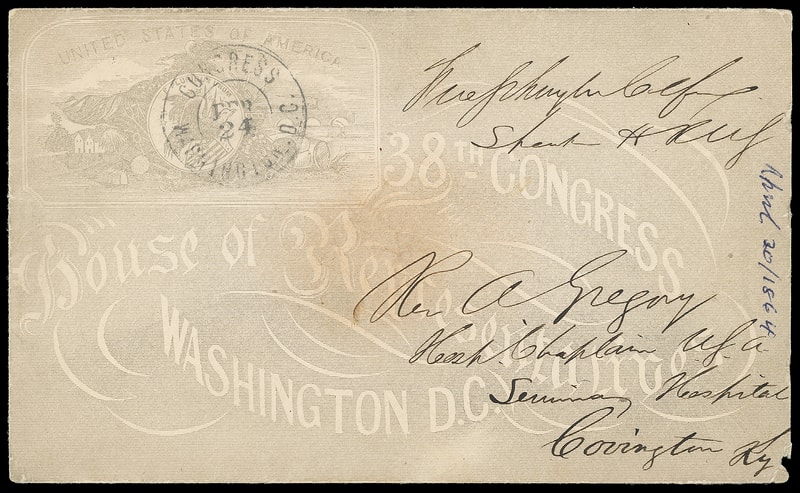 UNITED STATES OF AMERICA
CONGRESS
FEB
24
WASHINGTON. D.C.
38TH CONGRESS
House of Representatives
WASHINGTON D.C.
April 20/1864
Rev A Gregory
Hosp. Chaplain U.S.A.
Seminary Hospital
Covington Ky